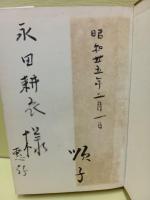 昭和廿五年二月一日
順子
永田耕衣様
恵存